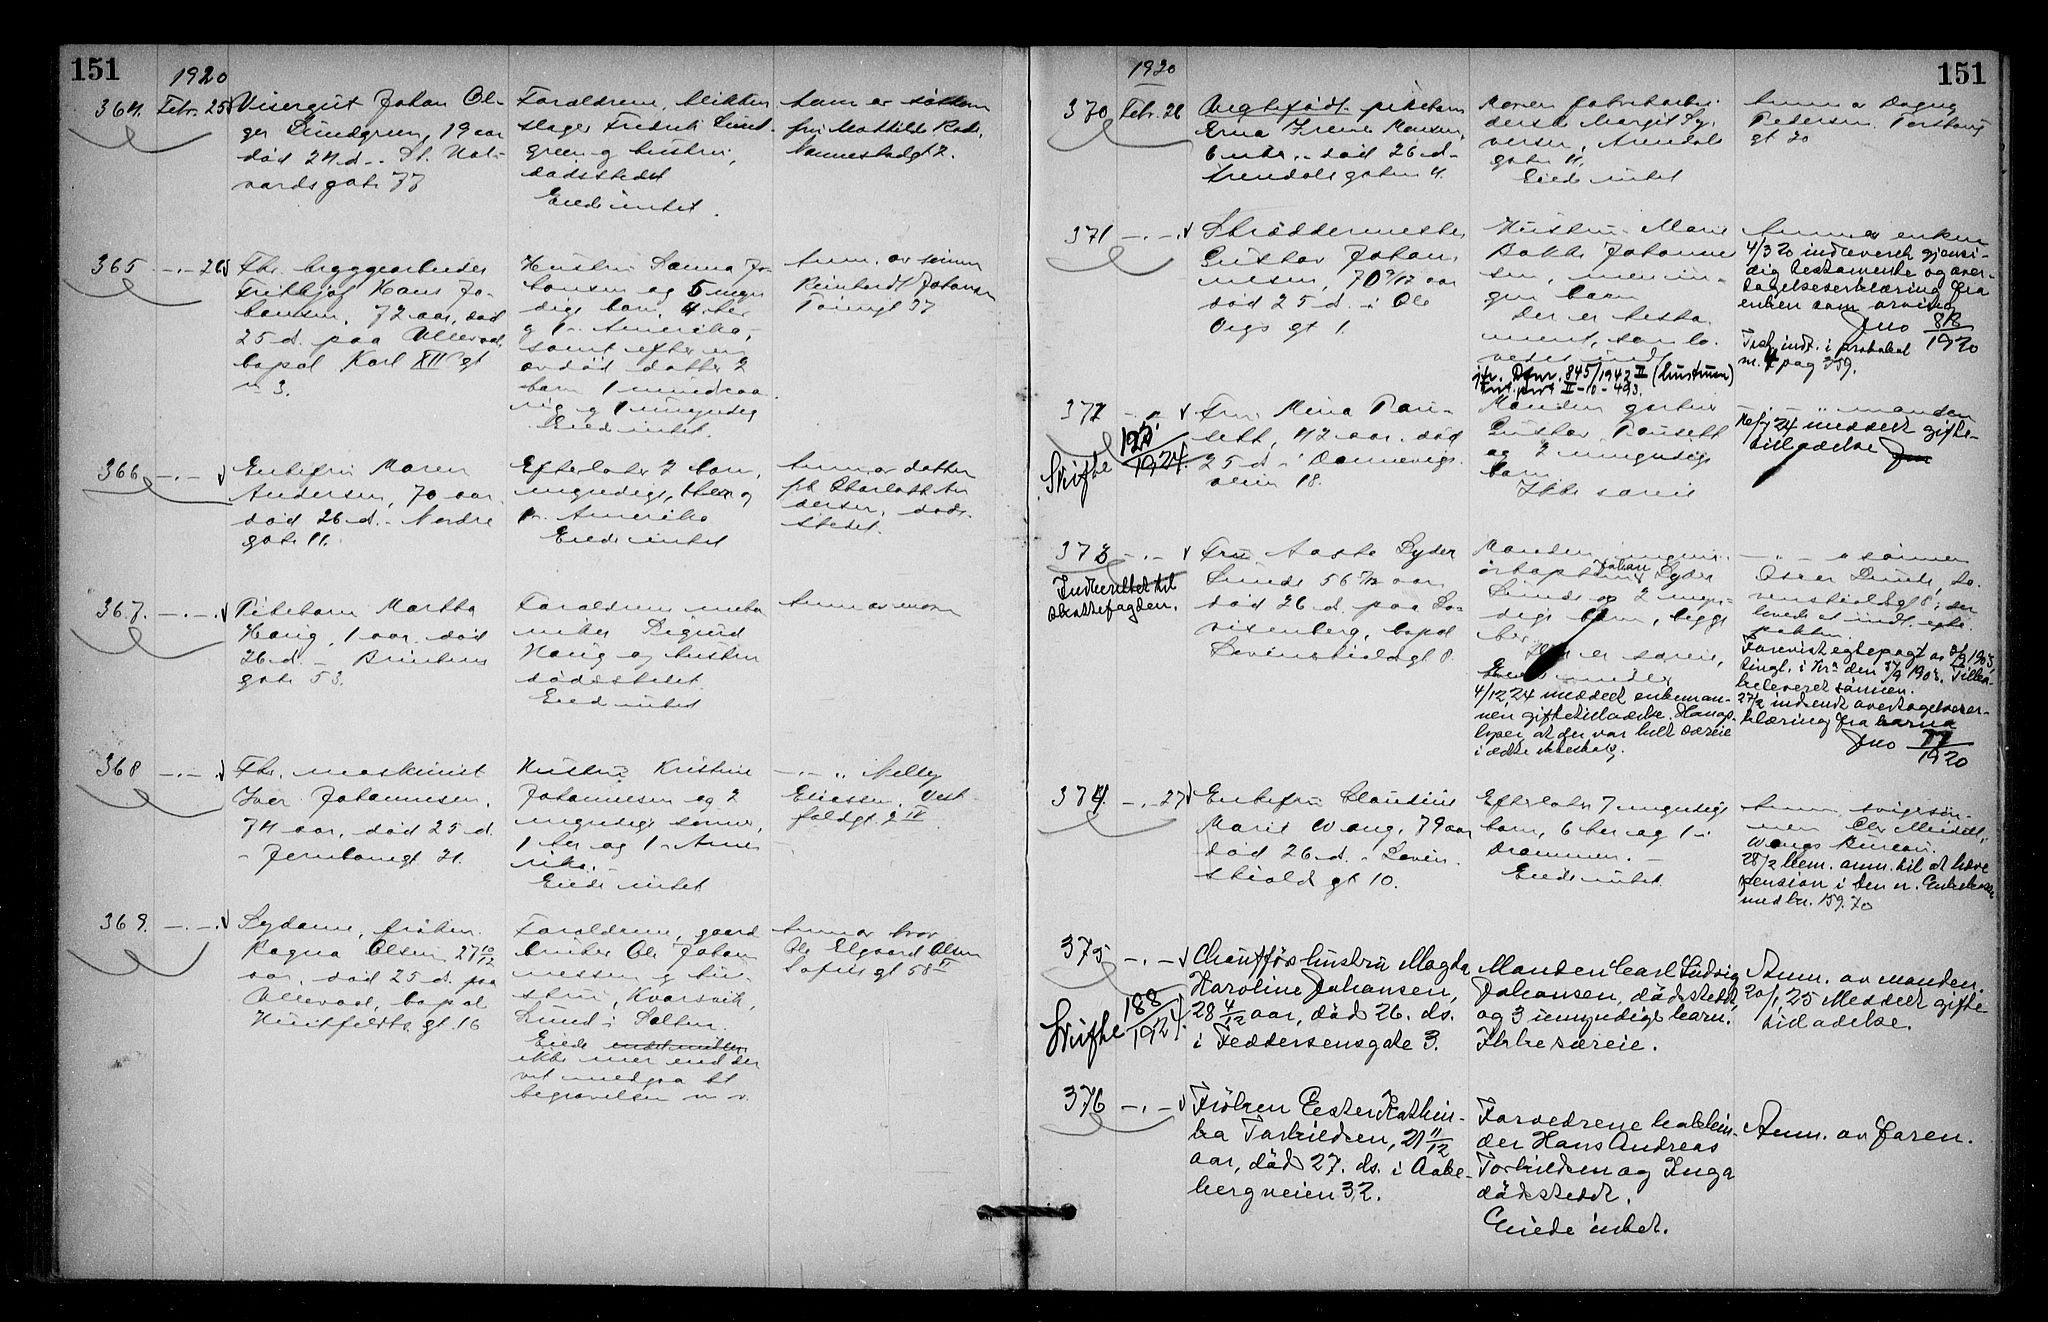 151
1920
364. Febr. 25
Visergut Johan Ol-
ger Lundgreen, 19 aar
død 24 d. - St. Hal-
vards gate 77
Forældrene, blikken
slager Fredrik Lund-
green og hustru,
dødsstedet
Eiede intet.
Anm. av søsteren
fru Mathilde
Nannestadgt 2.
365 -.- 26
Fhr. bryggearbeider
Fritthjof Hans Jo-
hansen, 72 aar, død
25 d. paa Ullevaal,
bopæl Karl XII gt
3.
Hustru Jo-
hansen og 5 myn
dige barn, 4 her
og 1 i Amerika,
samt efter en
avdød datter 2
barn 1 mindreaa
rig og 1 myndig
Eiede intet.
Anm. av sønnen
Reinhardt Johansen
37
366 -.-
Enkefru Maren
Andersen, 70 aar,
død 26 d. - Nordre
gate 11.
Efterlater 2 barn,
myndige, 1 her og
1 i Amerika
Eiede intet
Anm. av datter
frk Charlotte An
dersen, døds-
stedet.
367. -.-
Pikebarn Martha
Haug, 1 aar, død
26 d. -
gate 53.
Forældrene
Sigurd
Haug og hustru
dødsstedet.
Eiede intet
Anm. av moren
368 -.-
Fhr. maskinist
Iver Johannesen,
74 aar, død 25 d.
- Jernbanegt 21.
Hustru Kristine
Johannesen og 2
myndige sønner,
1 her og 1 i Ame
rika.
Eiede intet
-.- " Nelly
Eliassen, Vest-
foldgt. 2 IV
369. -.-
Sydame, frøken
Ragna Olsen, 27 10/12
aar, død 25 d. paa
Ullevaal, bopæl
Huitfeldts gt. 16
Forældrene, gaard
bruker Ole Johan
nessen og hu-
stru, Kvarsvik,
Sund i Salten.
Eiede
ikke mer end der
vil medgaa til
begravelsen m. v.
Anm. av bror
Ole Elgaard Olsen
Sofies gt 58 II
151
1920
370 Febr. 26
Uegtefødt pikebarn
Erna Irene Hansen,
6 mdr., død 26 d.
Arendalsgaten 4.
Moren fabrikarbei-
derske Margit Sy-
versen, Arendals
gaten 4.
Eiede intet
Anm. av Dagny
Pedersen,
gt 20
371 -.-
Skræddermester
Gustav Johan-
nesen, 70 9/12 aar
død 25 d. i Ole
Vigs gt 1.
Hustru Marie
Bakke Johanne
sen, men in-
gen barn
Der er testa-
ment, som lo-
vedes indl.
jfr. Dfnr. 845/1942 II (hustruen)
II - 10 - 493.
Anm. av enken
4/3 20 indleveret gjensi-
dig testamente og over-
tagelseserklæring fra
enken som arving.
Jno 82/1920
Test. indt. i protokol
nr. 4 pag 359.
372 -.-
Skifte 122/1924.
Fru Mina Rau-
sett, 42 aar, død
25 d. i Dannevigs-
veien 18.
Manden gartner
Gustav Rausett
og 2 umyndige
barn
Ikke særeie
-.- " manden
24 meddelt gifte-
tilladelse
373 -.-
Indberettet til
skattefogden.
Fru Aasta Lyder
Lunde 56 7/12 aar
død 26 d. paa Lo-
visenberg, bopæl
Løvenskioldgt 8.
Manden, ingeni-
ørkaptein Johan Lyder
Lunde og 2 myn-
dige barn, begge
her.
Der er særeie,
4/12 24 meddelt enkeman-
nen giftetilladelse. Han op-
lyser, at der var helt særeie
i dette ekteskap.
-.- " sønnen
Oscar Lunde, Lø-
venskioldgt 8; der
lovedes indt. egte-
pakten.
Forevist egtepagt av
tingl. i Kra den 1903. Tilba-
keleveret sønnen.
27/2 indsendt overtagelseser-
klæring fra barna
Jno 77/1920
374. -.- 27
Enkefru Claudine
Marie Wang, 79 aar
død 26 d. i Løven-
skiolds gt 10.
Efterlater 7 myndige
barn, 6 her og 1 i
Drammen.
Eiede intet.
Anm. svigersøn-
nen
Wangs Bureau.
28/2 hem. anm. til at hæve
pension i den n. Enkekasse
med kr. 159.70
375 -.-
Skifte 188/1924.
Chaufførhustru Magda
Karoline Johansen,
28 4/12 aar, død 26. ds.
i Feddersensgate 3.
Manden Carl Ludvig
Johansen, dødsstedet,
og 3 umyndige barn.
Ikke særeie.
Anm. av manden.
20/1 25 Meddelt gifte-
tilladelse.
376 -.-
Frøken Ester Kathin-
ka Torkildsen, 21 11/12
aar, død 27. ds. i Aake-
bergveien 32.
Forældrene
der Hans Andreas
Torkildsen og Inga
dødsstedet.
Eiede intet.
Anm. av faren.